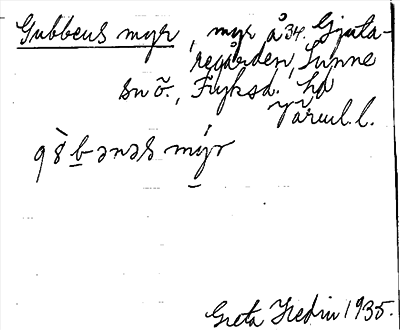 Gubbens myr, myr å 34. Gjuta-
regården, Sunne
sn ö., Fryksd. hd
Värml. l.
gò̀b̲ənəs mýr
Greta Hedin 1935.